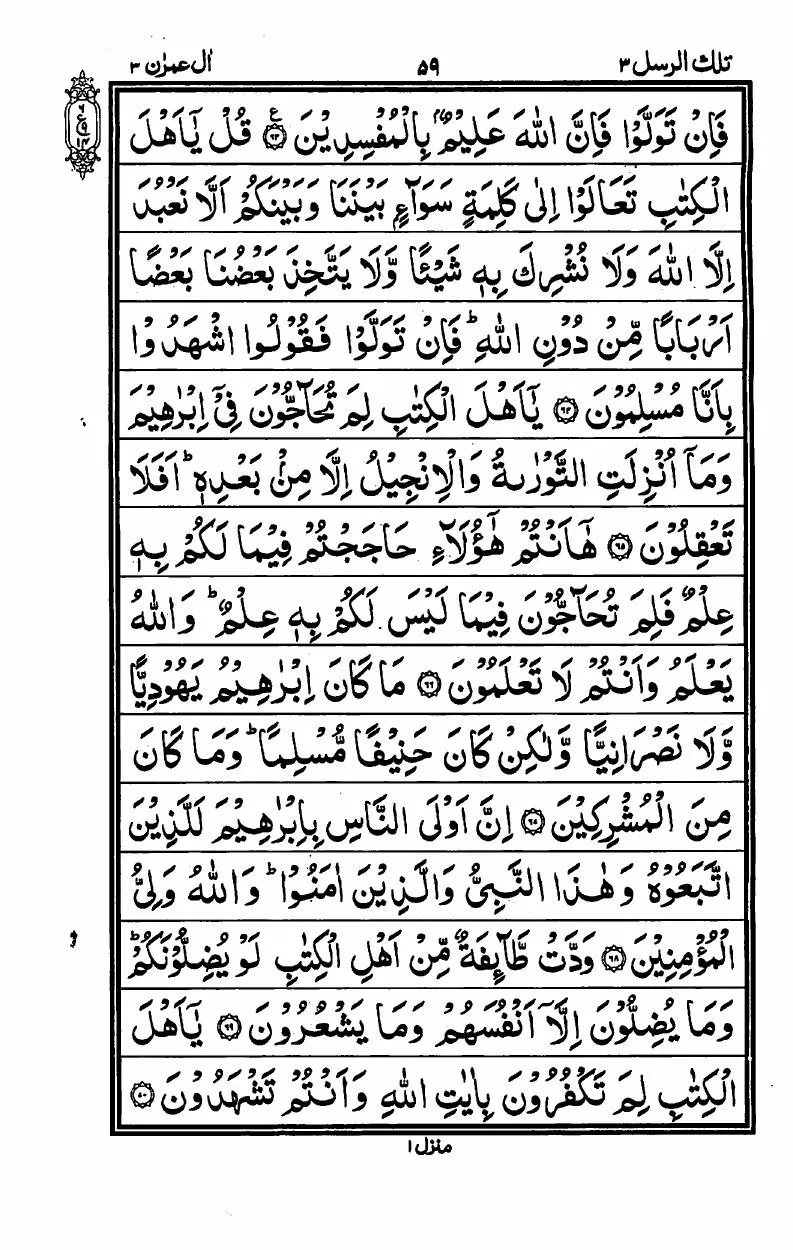 تلك الرسل ٣ ٥٩ اٰل عمرٰن ٣
فَاِنْ تَوَلَّوْا فَاِنَّ اللّٰهَ عَلِيْمٌۢ بِالْمُفْسِدِيْنَ ۝٦٣ ع قُلْ يٰۤاَهْلَ
٦ ع ٩ ١٤
الْكِتٰبِ تَعَالَوْا اِلٰى كَلِمَةٍ سَوَآءٍۭ بَيْنَنَا وَبَيْنَكُمْ اَلَّا نَعْبُدَ
اِلَّا اللّٰهَ وَلَا نُشْرِكَ بِهٖ شَيْـًٔا وَّلَا يَتَّخِذَ بَعْضُنَا بَعْضًا
اَرْبَابًا مِّنْ دُوْنِ اللّٰهِ ؕ فَاِنْ تَوَلَّوْا فَقُوْلُوا اشْهَدُوْا
بِاَنَّا مُسْلِمُوْنَ ۝٦٤ يٰۤاَهْلَ الْكِتٰبِ لِمَ تُحَآجُّوْنَ فِيْۤ اِبْرٰهِيْمَ
وَمَاۤ اُنْزِلَتِ التَّوْرٰىةُ وَالْاِنْجِيْلُ اِلَّا مِنْۢ بَعْدِهٖ ؕ اَفَلَا
تَعْقِلُوْنَ ۝٦٥ هٰۤاَنْتُمْ هٰۤؤُلَآءِ حَاجَجْتُمْ فِيْمَا لَكُمْ بِهٖ
عِلْمٌ فَلِمَ تُحَآجُّوْنَ فِيْمَا لَيْسَ لَكُمْ بِهٖ عِلْمٌ ؕ وَاللّٰهُ
يَعْلَمُ وَاَنْتُمْ لَا تَعْلَمُوْنَ ۝٦٦ مَا كَانَ اِبْرٰهِيْمُ يَهُوْدِيًّا
وَّلَا نَصْرَانِيًّا وَّلٰكِنْ كَانَ حَنِيْفًا مُّسْلِمًا ؕ وَمَا كَانَ
مِنَ الْمُشْرِكِيْنَ ۝٦٧ اِنَّ اَوْلَى النَّاسِ بِاِبْرٰهِيْمَ لَلَّذِيْنَ
اتَّبَعُوْهُ وَهٰذَا النَّبِيُّ وَالَّذِيْنَ اٰمَنُوْا ؕ وَاللّٰهُ وَلِيُّ
الْمُؤْمِنِيْنَ ۝٦٨ وَدَّتْ طَّآئِفَةٌ مِّنْ اَهْلِ الْكِتٰبِ لَوْ يُضِلُّوْنَكُمْ ؕ
وَمَا يُضِلُّوْنَ اِلَّاۤ اَنْفُسَهُمْ وَمَا يَشْعُرُوْنَ ۝٦٩ يٰۤاَهْلَ
الْكِتٰبِ لِمَ تَكْفُرُوْنَ بِاٰيٰتِ اللّٰهِ وَاَنْتُمْ تَشْهَدُوْنَ ۝٧٠
منزل ١